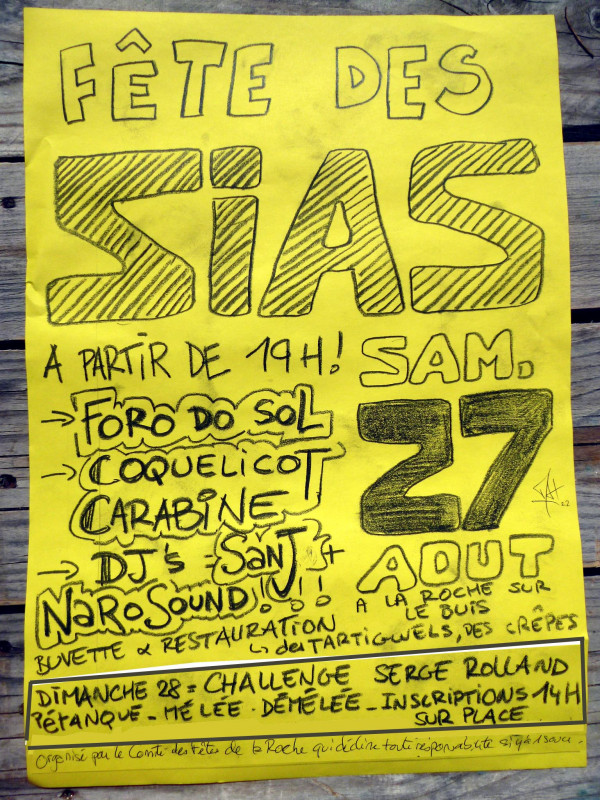 FÊTE DES
SiAS
A PARTIR DE 19H!
SAM.
27
AOUT
→ FORO DO SOL
→ COQUELICOT
CARABiNE
→ DJ's = SANJ +
NAROSOUND!!!
A LA ROCHE SUR
LE BUIS
BUVETTE & RESTAURATION
↳ des TARTIGNELS, DES CRÊPES
DIMANCHE 28 = CHALLENGE SERGE ROLLAND
PÉTANQUE - MÉLÉE. DÉMÉLÉE - INSCRIPTIONS 14H
SUR PLACE
Organisé par le Comité des Fêtes de la Roche qui décline toute responsabilité